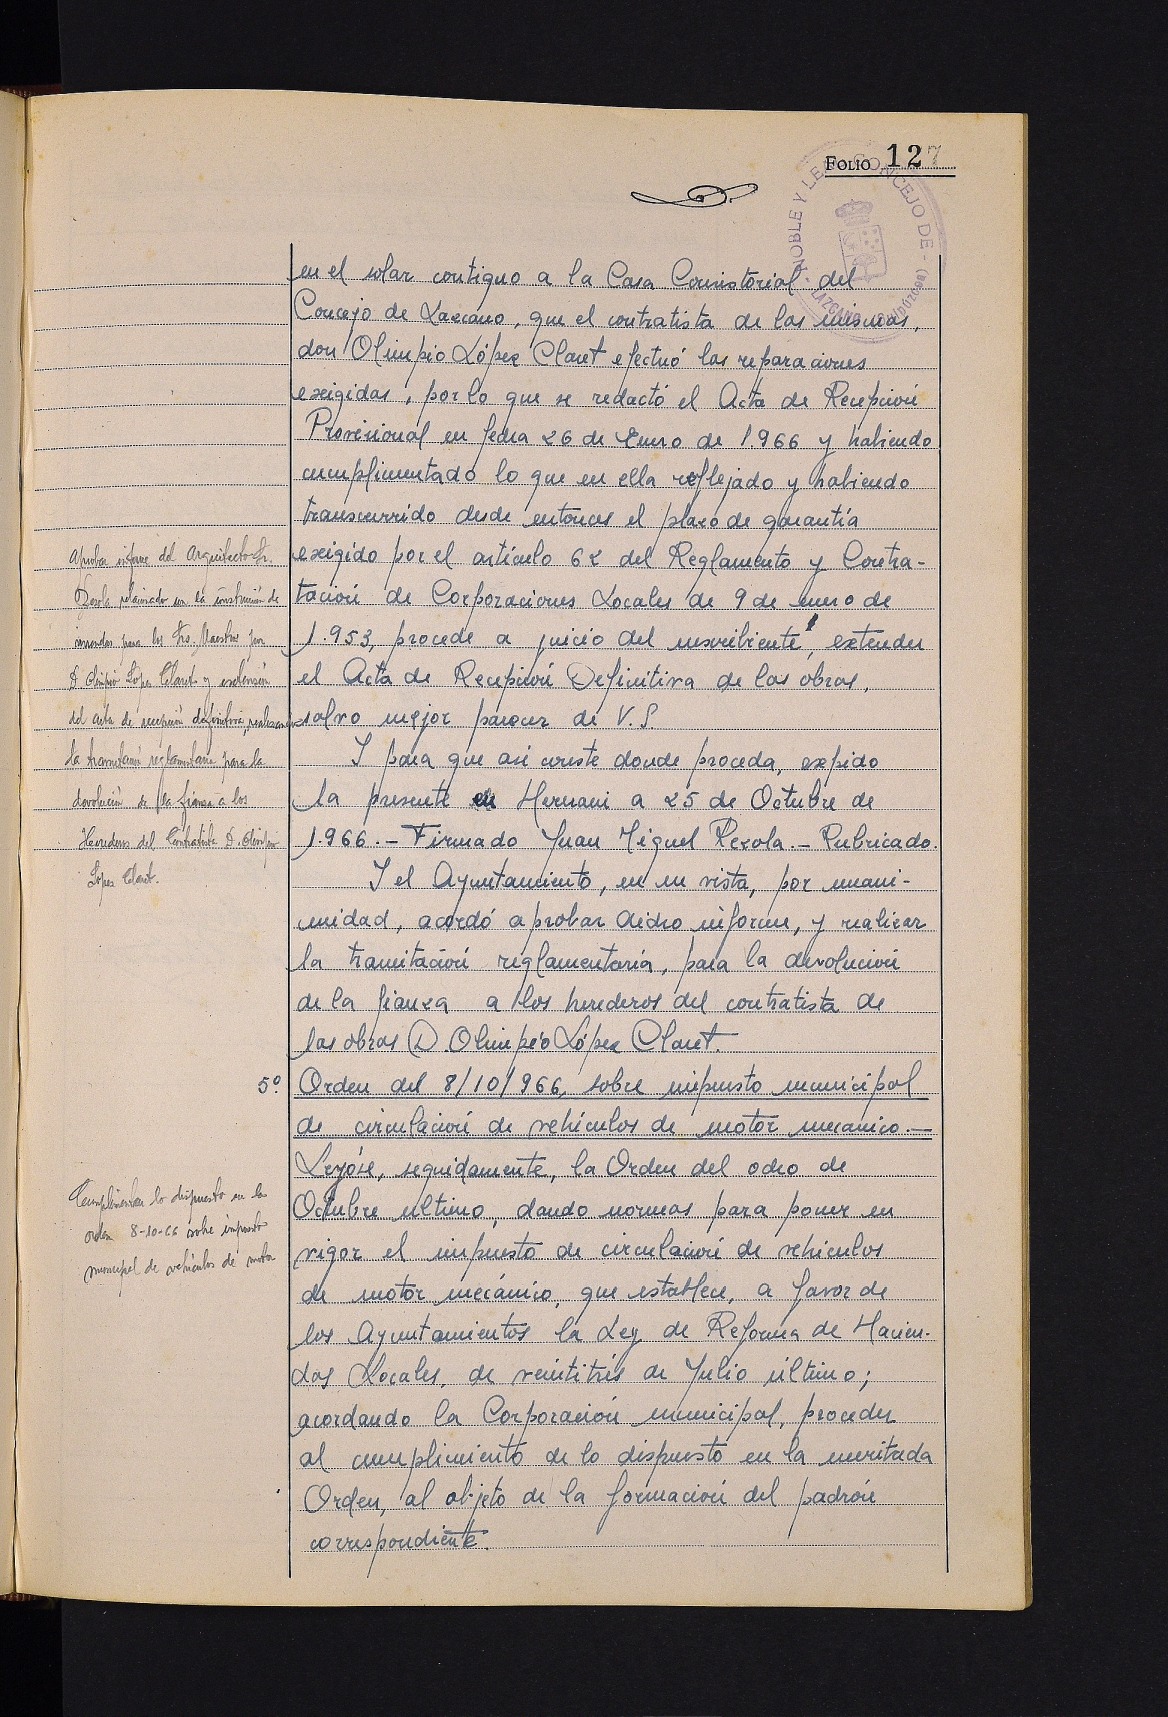 FOLIO 127
NOBLE Y LEAL CONCEJO DE - LAZCANO (GUIPÚZCOA)
en el solar contiguo a la Casa Consistorial del
Concejo de Lazcano, que el contratista de las mismas,
don Olimpio López Claret efectuó las reparaciones
exigidas, por lo que se redactó el Acta de Recepción
Provisional en fecha 26 de Enero de 1.966 y habiendo
cumplimentado lo que en ella reflejado y habiendo
transcurrido desde entonces el plazo de garantía
exigido por el artículo 62 del Reglamento y Contra-
tación de Corporaciones Locales de 9 de enero de
1.953, procede a juicio del suscribiente, extender
el Acta de Recepción Definitiva de las obras,
salvo mejor parecer de V.S.
Y para que así conste donde proceda, expido
la presente en Hernani a 25 de Octubre de
1.966.- Firmado Juan Miguel Rezola.- Rubricado.
Y el Ayuntamiento, en su vista, por unani-
midad, acordó aprobar dicho informe, y realizar
la tramitación reglamentaria, para la devolución
de la fianza a los herederos del contratista de
las obras D. Olimpio López Claret.
Aprobar informe del Arquitecto Sr.
Rezola relacionado con la construcción de
viviendas para los Srs. Maestros por
D. Olimpio López Claret y extensión
del acta de recepción definitiva, realizando
la tramitación reglamentaria para la
devolución de la fianza a los
Herederos del Contratista D. Olimpio
López Claret.
5º. Orden del 8/10/966, sobre impuesto municipal
de circulación de vehículos de motor mecanico.-
Leyóse, seguidamente, la Orden del ocho de
Octubre ultimo, dando normas para poner en
vigor el impuesto de circulación de vehiculos
de motor mecánico, que establece, a favor de
los Ayuntamientos la Ley de Reforma de Hacien-
das Locales, de veintitrés de Julio último;
acordando la Corporación municipal, proceder
al cumplimiento de lo dispuesto en la meritada
Orden, al objeto de la formación del padrón
correspondiente.
Cumplimentar lo dispuesto en la
orden 8-10-66 sobre impuesto
municipal de vehículos de motor